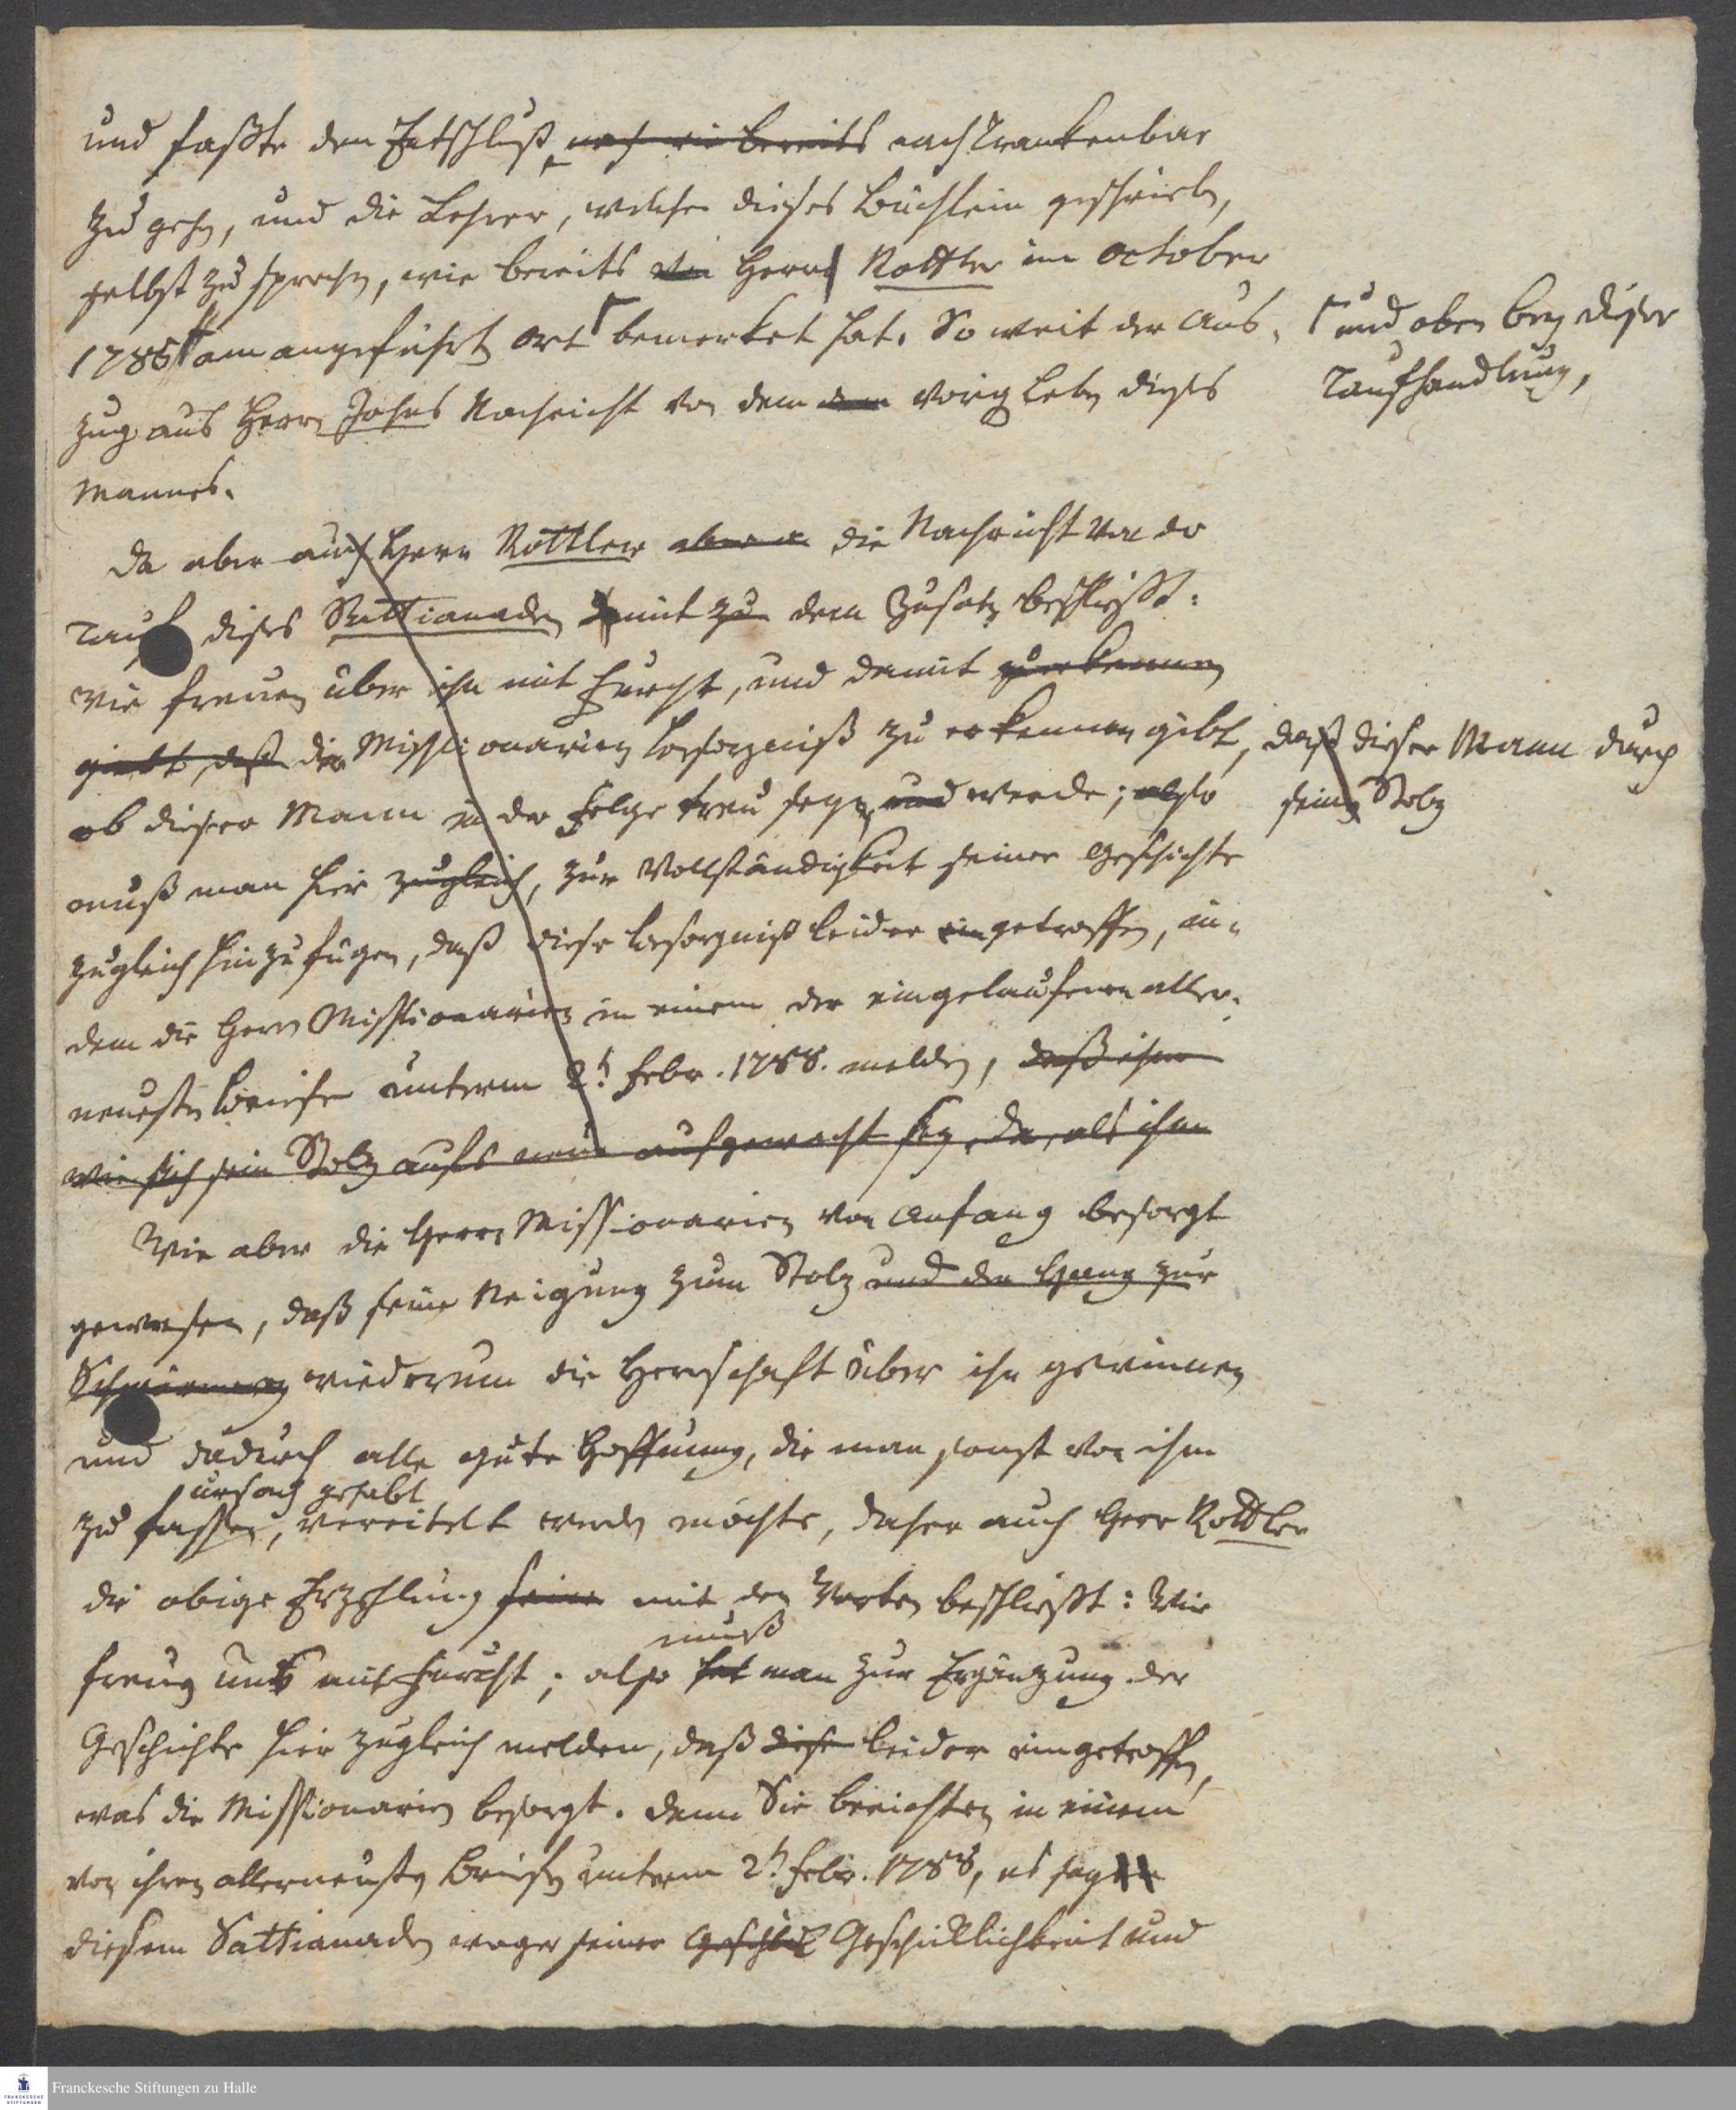 und faßte den Entschluß, noch wie bereits nach Trankenbar
zu gehn, und die Lehrer, welche dieses Büchlein geschrieben,
selbst zu sprechen, wie bereits die Herr Rottler im October
1786 am angeführten Ort bemerket hat. So weit der Aus-
und oben bey dieser
Taufhandlung,
zug aus Herrn Johns Nachricht von dem dem vorigen Leben dieses
Mannes.
Da aber auch Herr Rottler aber die Nachricht von der
Taufe dieses Sattianaden mit zu dem Zusatz beschließt:
wir freuen über ihn mit Furcht, und damit zu erkennen
giebt, daß die Missionarien Besorgniß zu erkennen gibt,
daß dieser Mann durch
seinen Stolz
ob dieser Mann in der Folge treu seyn und werde; also
muß man hier zugleich, zur Vollständigkeit seiner Geschichte
zugleich hinzufügen, daß diese Besorgniß leider eingetroffen, in-
dem die Herrn Missionarien in einem der eingelaufenen aller-
neuesten Briefe unterm 2t Febr. 1788. melden, daß ihm
wie sich sein Stolz aufs neue aufgewacht sey, da, als ihm
Wie aber die Herrn Missionarien von Anfang besorgt
gewesen, daß seine Neigung zum Stolz und der Hang zur
Schwärmerey wiederum die Herrschaft über ihn gewinnen
und dadurch alle gute Hoffnung, die man sonst von ihm
ursach gehabt
zu fassen, vereitelt werden möchte, daher auch Herr Rottler
die obige Erzehlung seine mit den Worten beschließt: Wir
muß
freuen uns mit Furcht; also hat man zur Ergänzung der
Geschichte hier zugleich melden, daß diese leider eingetroffen,
was die Missionarien besorgt. Denn Sie berichten in einem
von ihren allerneusten Briefen unterm 2t Febr. 1788, es sey
diesem Sattianaden wegen seiner Geschick Geschicklichkeit und
Franckesche Stiftungen zu Halle
FRANCKESCHE
STIFTUNGEN